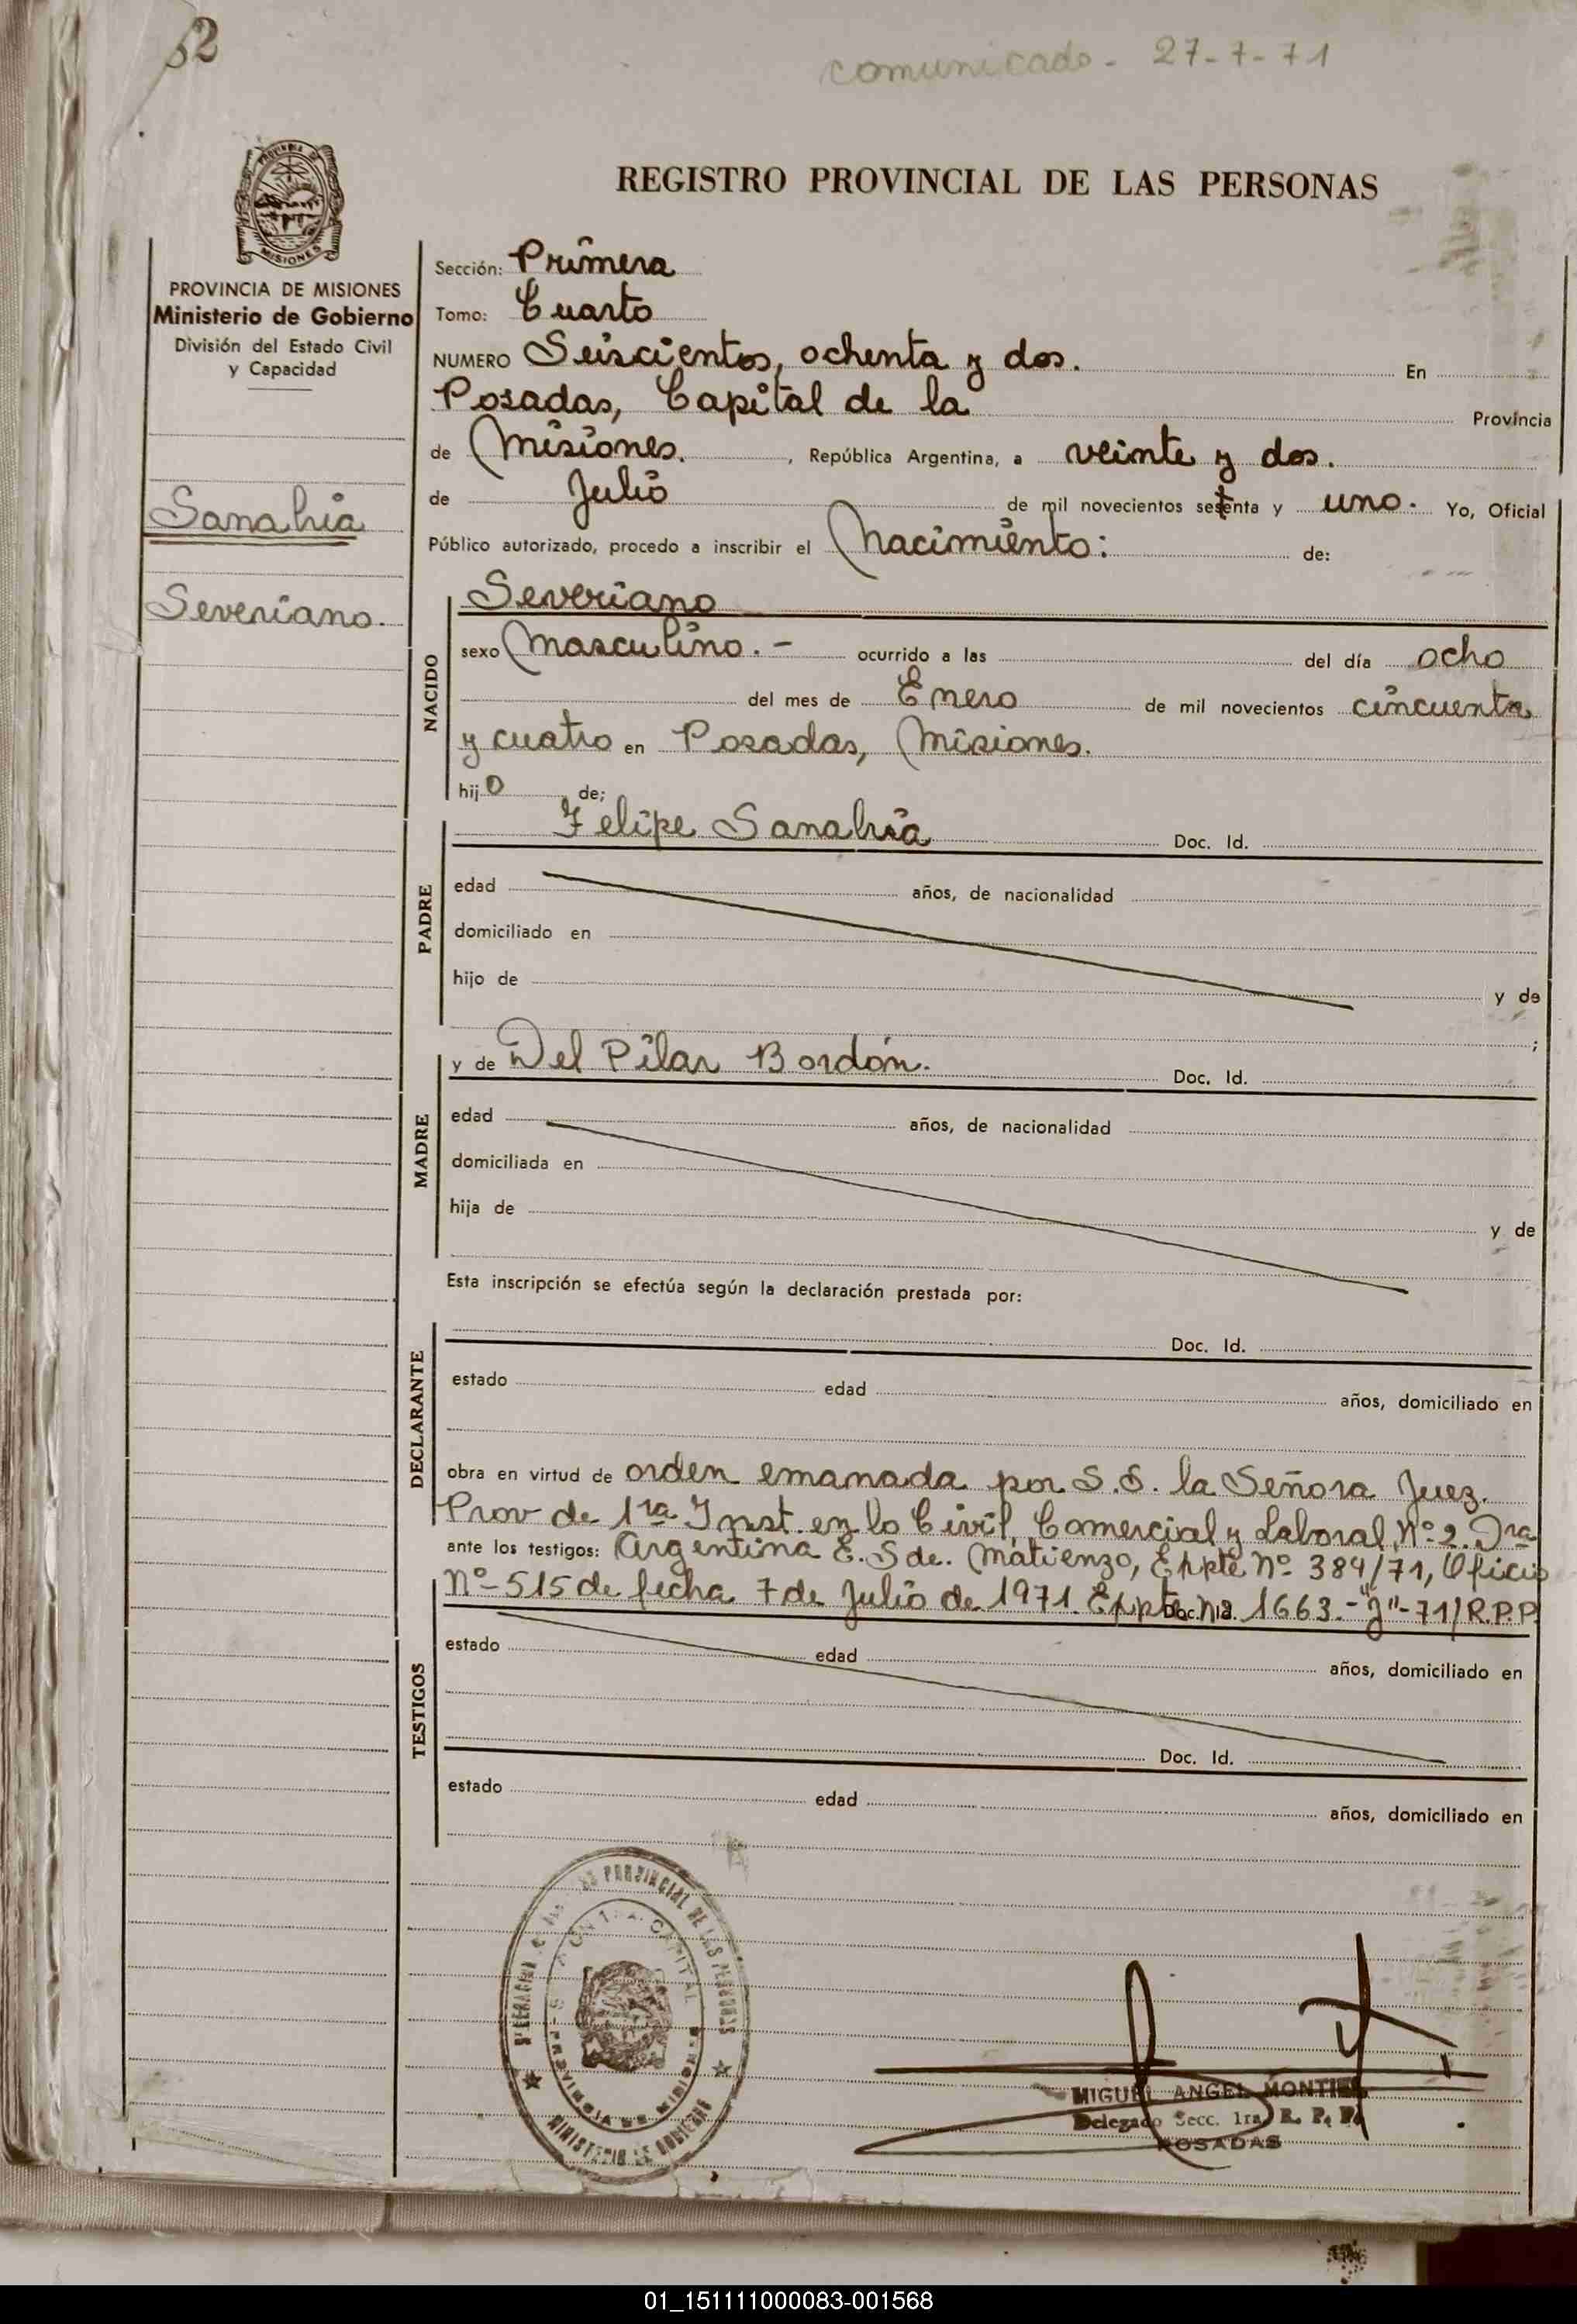 82
comunicado - 27-7-71
REGISTRO PROVINCIAL DE LAS PERSONAS
PROVINCIA DE MISIONES
Ministerio de Gobierno
División del Estado Civil
y Capacidad
Sanabria
Severiano.
Sección: Primera
Tomo: Cuarto
NUMERO Seiscientos, ochenta y dos. En
Posadas, Capital de la Provincia
de Misiones. , República Argentina, a veinte y dos.
de Julio de mil novecientos setenta y uno. Yo, Oficial
Público autorizado, procedo a inscribir el Nacimiento: de:
NACIDO
Severiano
sexo Masculino. - ocurrido a las del día ocho
del mes de Enero de mil novecientos cincuenta
y cuatro en Posadas, Misiones.
hijo de;
PADRE
Felipe Sanabria Doc. Id.
edad años, de nacionalidad
domiciliado en
hijo de y de
;
MADRE
y de Del Pilar Bordón. Doc. Id.
edad años, de nacionalidad
domiciliada en
hija de y de
Esta inscripción se efectúa según la declaración prestada por:
DECLARANTE
Doc. Id.
estado edad años, domiciliado en
obra en virtud de orden emanada por S.S. la Señora Juez.
Prov de 1ra Inst. en lo Civil, Comercial y Laboral, Nº 2. Dra
ante los testigos: Argentina E. S de. Matienzo, Expte Nº 384/71, Oficio
Nº- 515 de fecha 7 de Julio de 1971. Expte. Nº 1663.-"J"-71/R.P.P.
TESTIGOS
estado edad años, domiciliado en
Doc. Id.
estado edad años, domiciliado en
PROVINCIAL DE LAS PERSONAS
CAPITAL
PROVINCIA DE MISIONES
MINISTERIO DE GOBIERNO
MIGUEL ANGEL MONTIEL
Delegado Secc. 1ra. R. P. P.
POSADAS
01_151111000083-001568